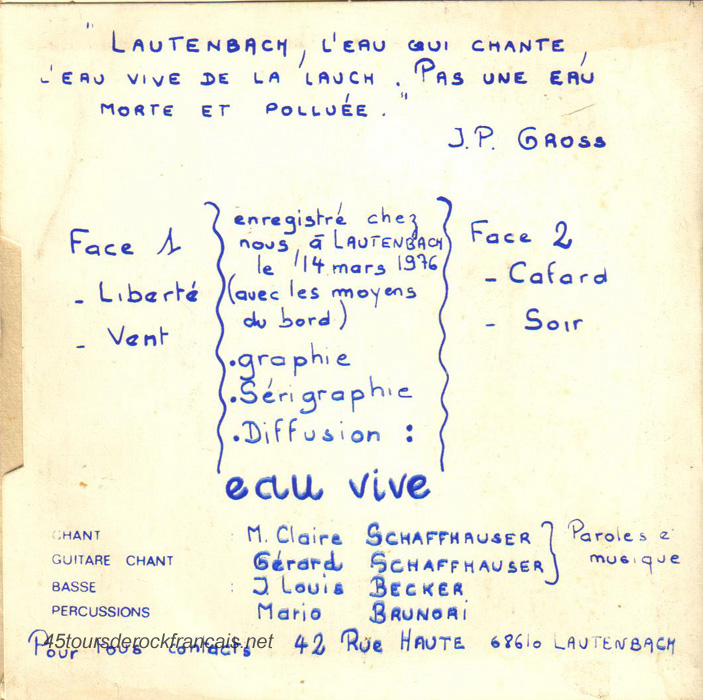 " LAUTENBACH, L'EAU QUI CHANTE,
L'EAU VIVE DE LA LAUCH. PAS UNE EAU
MORTE ET POLLUÉE. "
J.P. GROSS
Face 1
- Liberté
- Vent
enregistré chez
nous, à LAUTENBACH
le 14 mars 1976
(avec les moyens
du bord)
.graphie
.Sérigraphie
.Diffusion :
eau vive
Face 2
- Cafard
- Soir
CHANT M. Claire SCHAFFHAUSER } Paroles e
GUITARE CHANT Gérard SCHAFFHAUSER } musique
BASSE : J. Louis BECKER
PERCUSSIONS Mario BRUNORI
Pour tous contacts 42 Rue HAUTE 68610 LAUTENBACH
45toursderockfrancais.net